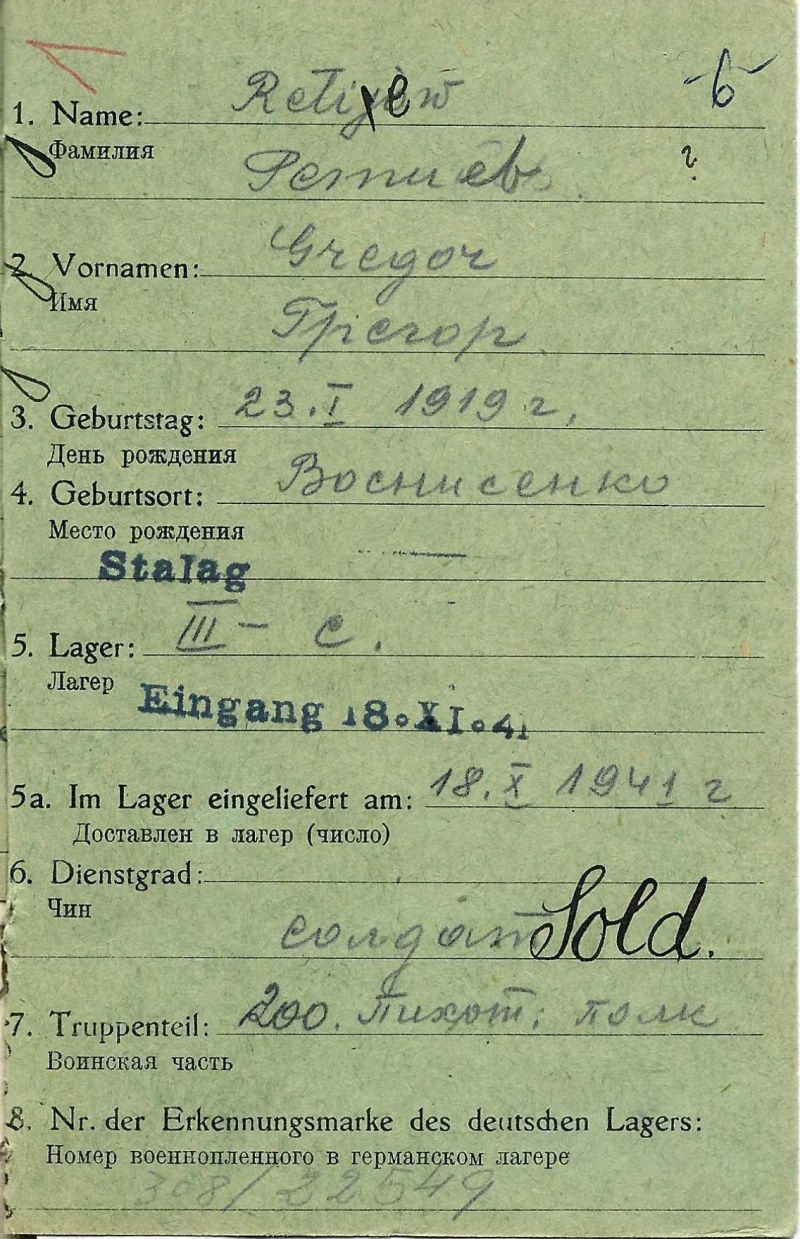 1. Name: Retijew -6-
Фамилия Ретиев г
2. Vornamen: Gregor
Имя Грегор
3. Geburtstag: 23.I 1919 г.
День рождения
4. Geburtsort: Воснисенко
Место рождения
Stalag
5. Lager: III - C.
Лагер
Eingang 18.XI.41
5a. Im Lager eingeliefert am: 18.X 1941 г
Доставлен в лагер (число)
6. Dienstgrad:
Чин
солдат Sold.
7. Truppenteil: 200. Пихот: полк
Воинская часть
8. Nr. der Erkennungsmarke des deutschen Lagers:
Номер военнопленного в германском лагере
308/22549